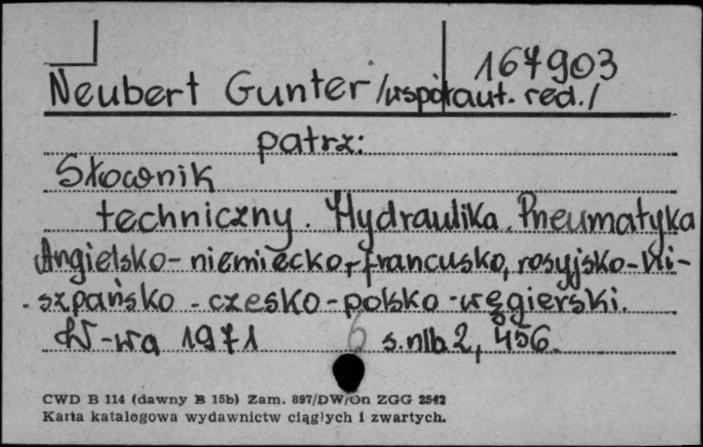 167903
Neubert Gunter /współaut. red./
patrz:
Słownik
techniczny. Hydraulika. Pneumatyka
Angielsko-niemiecko-francusko, rosyjsko-hi-
szpańsko-czesko-polsko-węgierski.
W-wa 1971 6 s.nlb. 2, 456.
CWD B 114 (dawny B 15b) Zam. 897/DW/On ZGG 2542
Karta katalogowa wydawnictw ciągłych i zwartych.